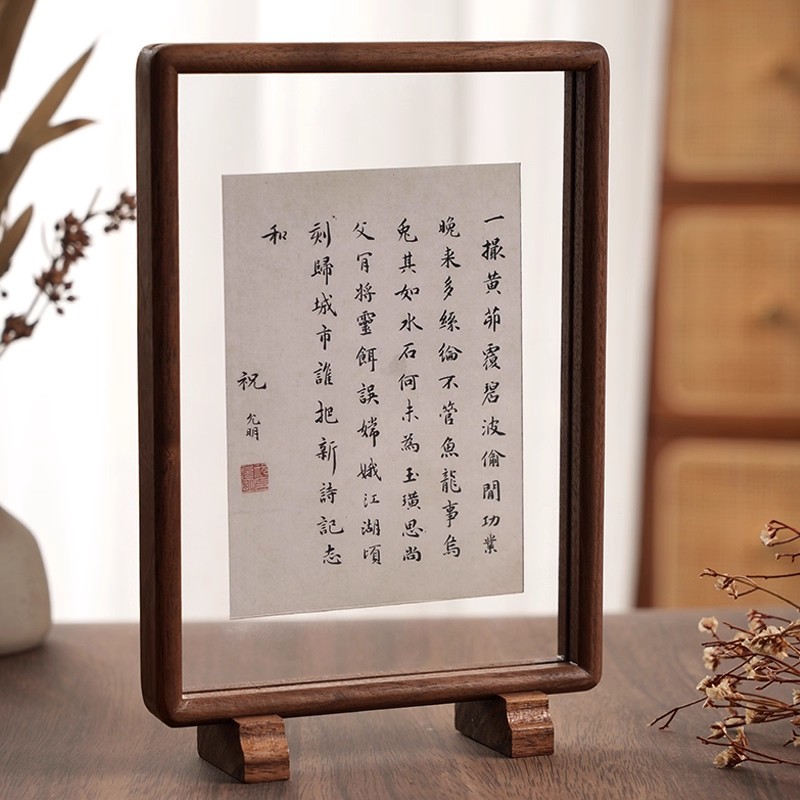 一撮黄茆覆碧波偷閒功業
晚来多絲綸不管魚龍事烏
兎其如水石何未為玉璜思尚
父肎将靈餌誤嫦娥江湖頃
刻歸城市誰把新詩記志
和
祝允明